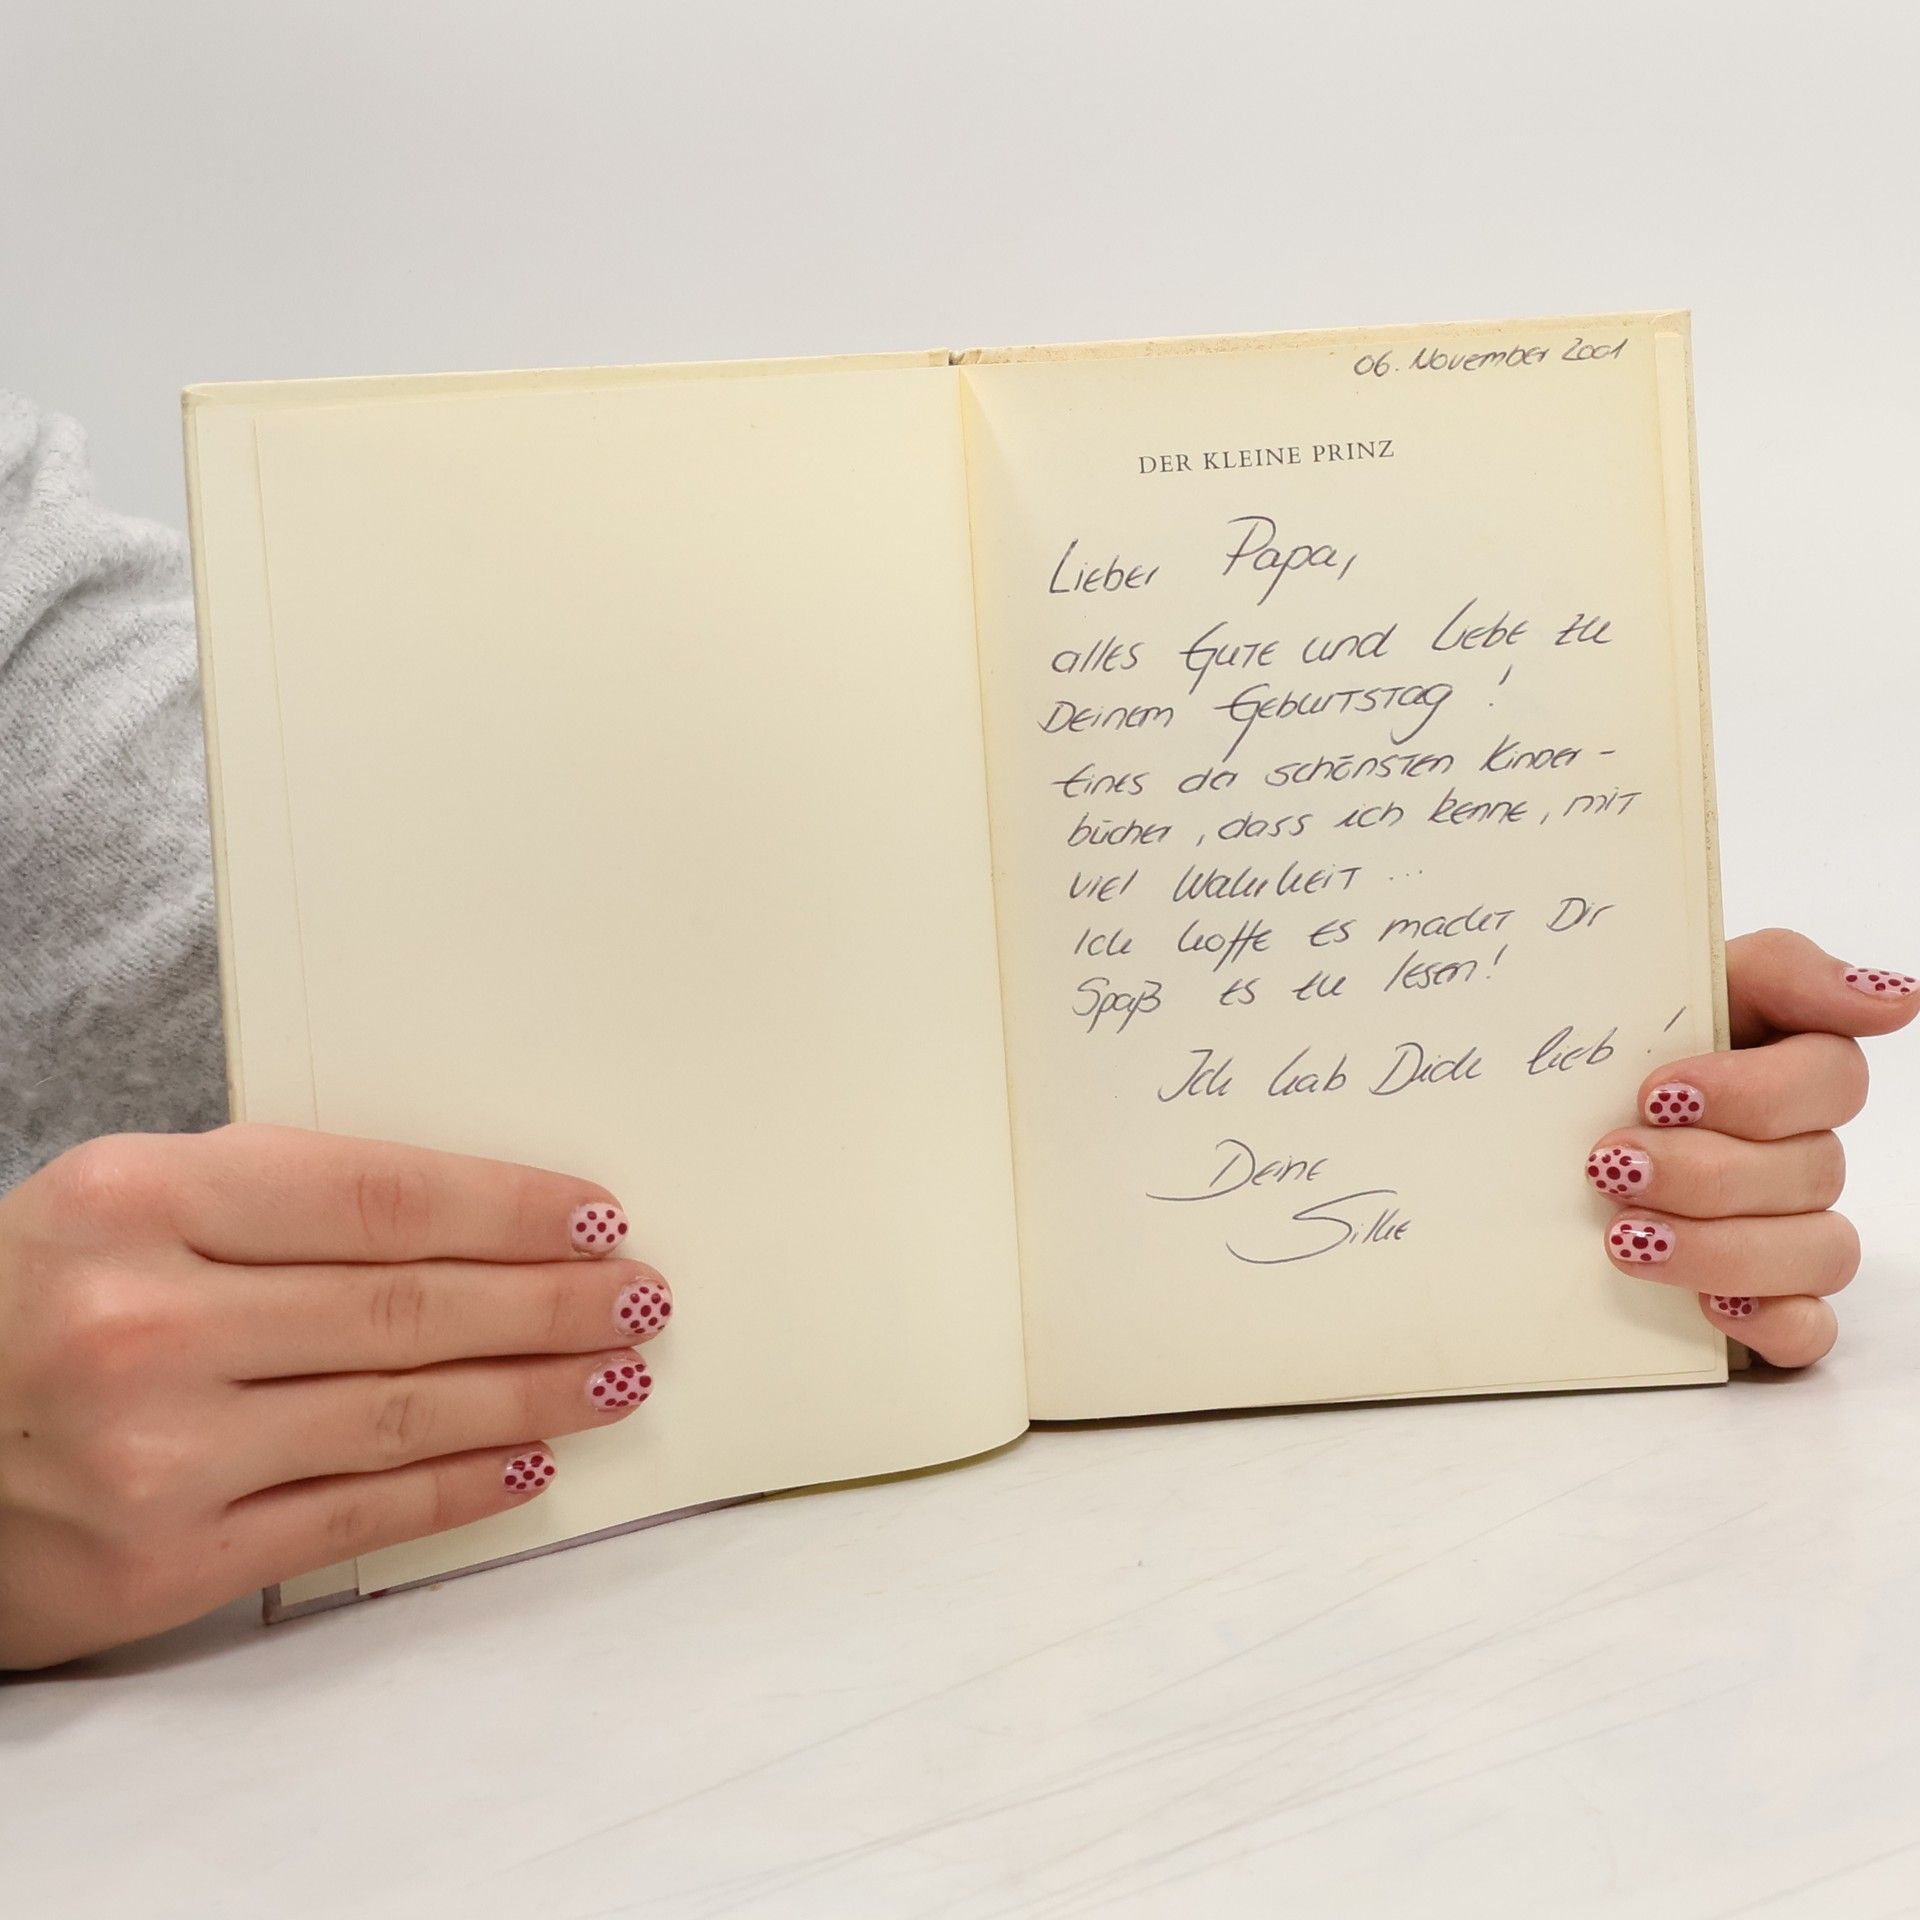 06. November 2001
DER KLEINE PRINZ
Lieber Papa,
alles Gute und Liebe zu
Deinem Geburtstag!
Eines der schönsten Kinder-
bücher, dass ich kenne, mit
viel Wahrheit ...
Ich hoffe es macht Dir
Spaß es zu lesen!
Ich hab Dich lieb!
Deine
Silke